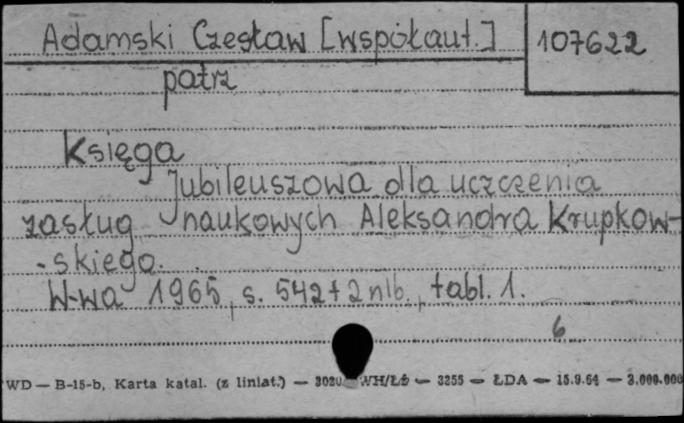 Adamski Czesław [współaut.] 107622
patrz
Księga
Jubileuszowa dla uczczenia
zasług naukowych Aleksandra Krupkow-
-skiego.
W-wa 1965, s. 542+2nlb., tabl. 1.
6
WD — B-15-b, Karta katal. (z liniat.) — WH/Łź — 3255 — ŁDA — 15.9.64 — 3.000.000